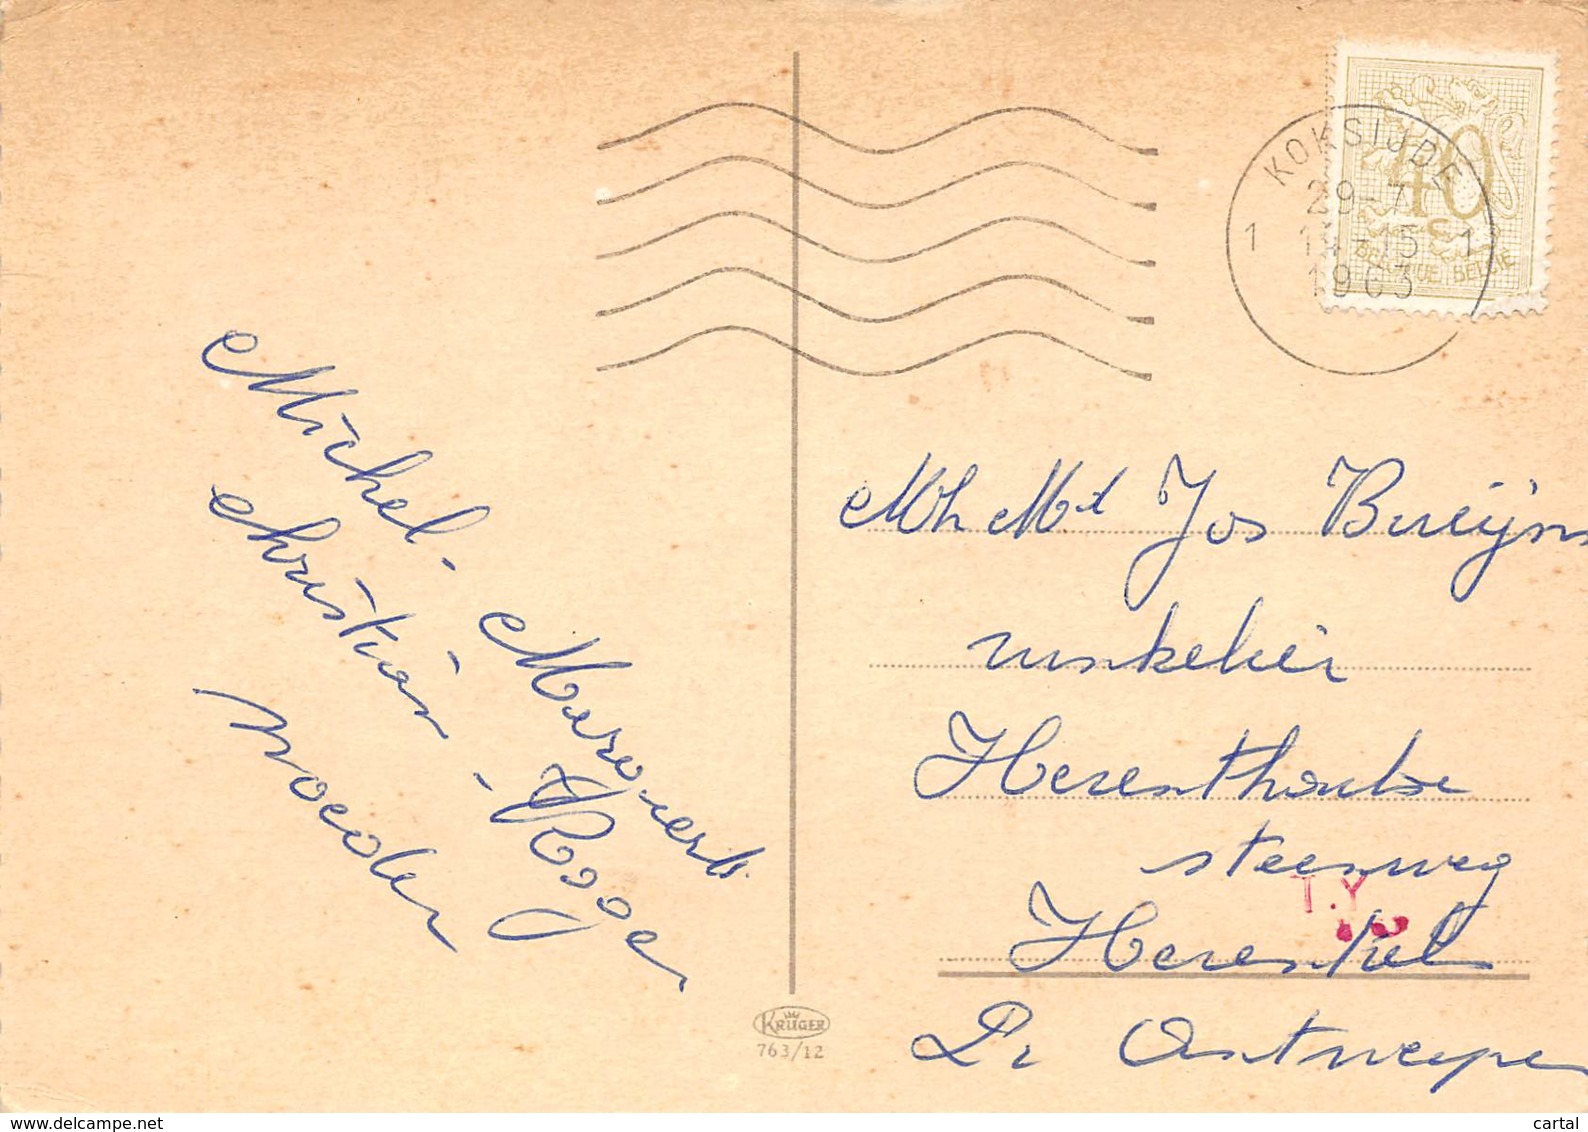 KOKSIJDE
29-7
1 14-15 1
1963
40 c
BELGIQUE BELGIE
Michel.
Christian
moeder
Roger
Mh Md Jos Bruÿns
Herenthoutse
steenweg
T.Y
Herentals
Pr Antwerpen
KRÜGER
763/12
www.delcampe.net
cartal